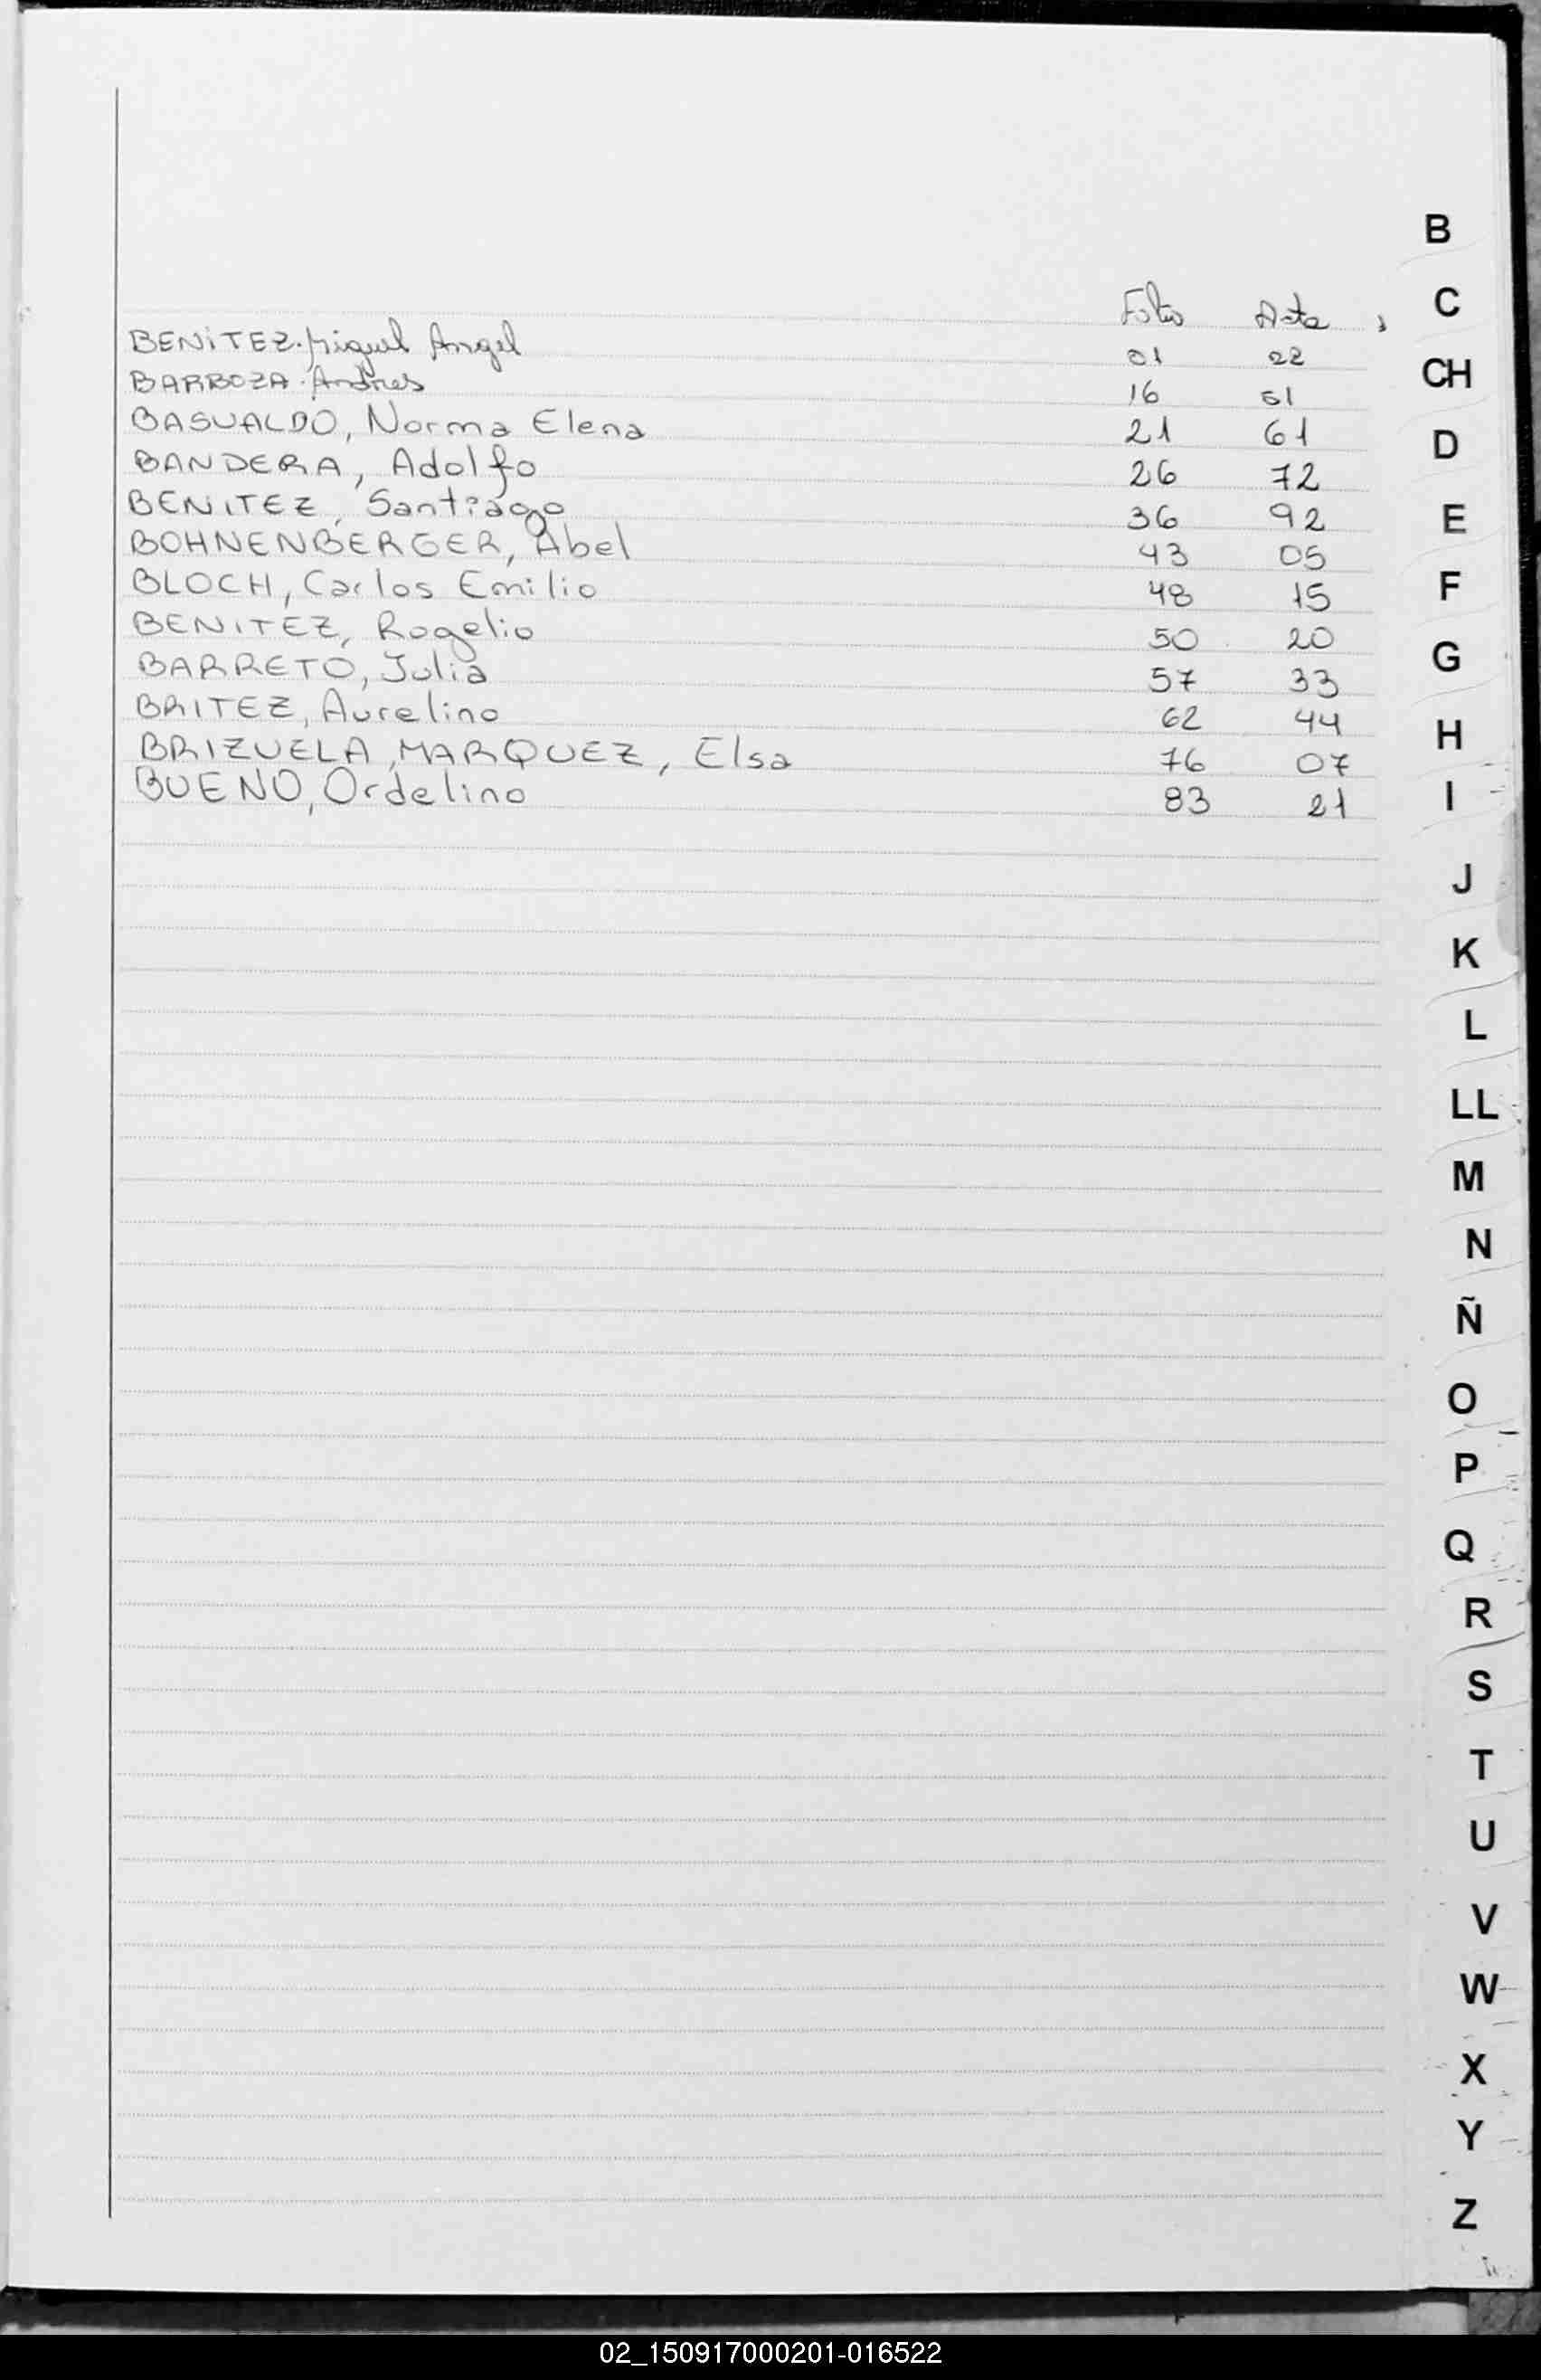 Folio Acta
BENITEZ. Miguel Angel 01 22
BARBOZA. Andres 16 51
BASUALDO, Norma Elena 21 61
BANDERA, Adolfo 26 72
BENITEZ, Santiago 36 92
BOHNENBERGER, Abel 43 05
BLOCH, Carlos Emilio 48 15
BENITEZ, Rogelio 50 20
BARRETO, Julia 57 33
BRITEZ, Aurelino 62 44
BRIZUELA, MARQUEZ, Elsa 76 07
BUENO, Ordelino 83 21
B
C
CH
D
E
F
G
H
I
J
K
L
LL
M
N
Ñ
O
P
Q
R
S
T
U
V
W
X
Y
Z
02_150917000201-016522